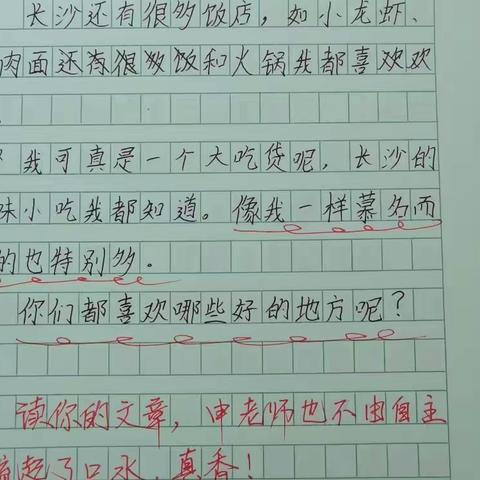 长沙还有很多饭店，如小龙虾、
肉面还有很多饭和火锅我都喜欢欢
？我可真是一个大吃货呢，长沙的
味小吃我都知道。像我一样慕名而
的也特别多。
你们都喜欢哪些好的地方呢？
读你的文章，申老师也不由自主
起了口水，真香！